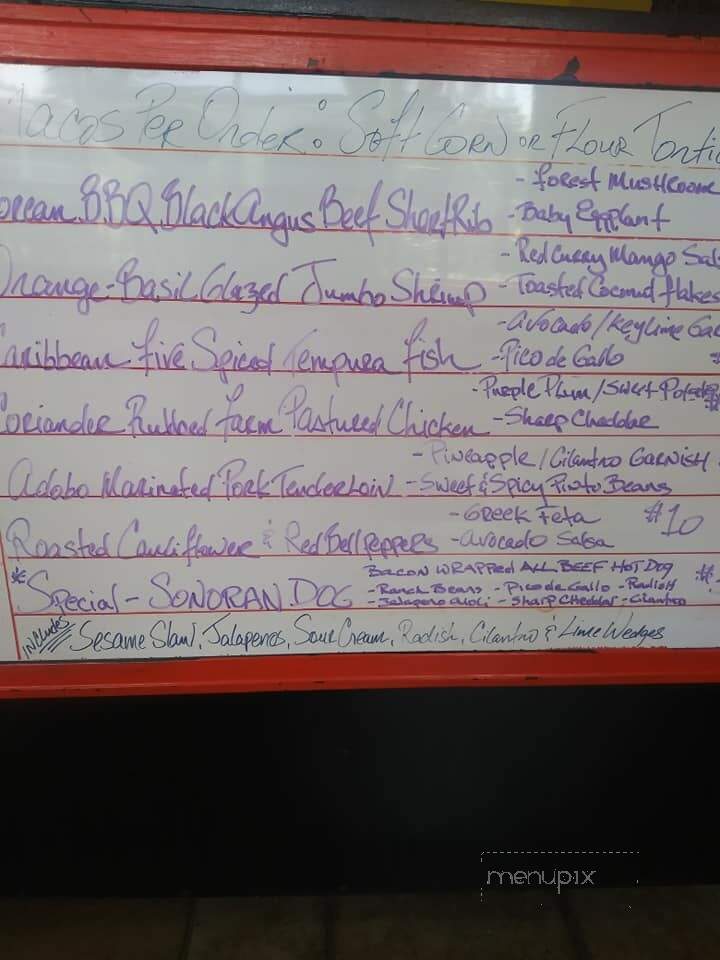 Tacos Per Order: Soft Corn or Flour Torti
- Forest Mushroom
orean BBQ Black Angus Beef Short Rib - Baby Eggplant
- Red Curry Mango Sals
Orange-Basil Glazed Jumbo Shrimp - Toasted Coconut flakes
- Avocado/Key Lime Gua
Caribbean Five Spiced Tempura fish - Pico de Gallo
- Purple Plum/Sweet Potato
Coriander Rubbed Farm Pastured Chicken - Sharp Cheddar
- Pineapple/Cilantro Garnish
Adobo Marinated Pork Tenderloin - Sweet & Spicy Pinto Beans
- Greek Feta $10
Roasted Cauliflower & Red Bell peppers - Avocado Salsa
Bacon Wrapped ALL BEEF HOT DOG
* Special - SONORAN DOG - Ranch Beans - Pico de Gallo - Radish
- Jalapeno aioli - Sharp Cheddar - Cilantro
Includes Sesame Slaw, Jalapenos, Sour Cream, Radish, Cilantro & Lime Wedges
menupix